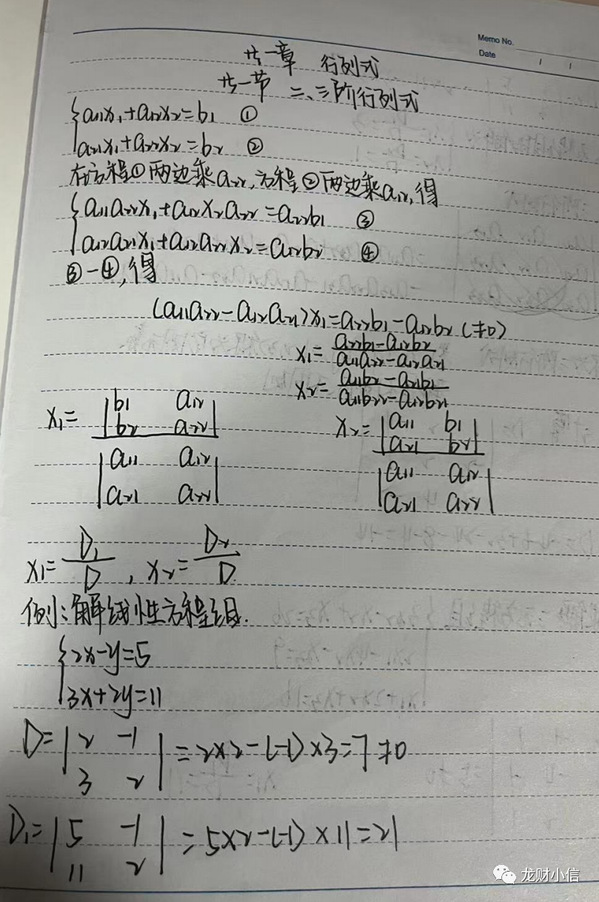 Memo No.
Date / /
第一章 行列式
第一节 二、三阶行列式
{a₁₁x₁+a₁₂x₂=b₁ ①
a₂₁x₁+a₂₂x₂=b₂ ②
在方程①两边乘a₂₂,方程②两边乘a₁₂,得
{a₁₁a₂₂x₁+a₁₂x₂a₂₂=a₂₂b₁ ③
a₁₂a₂₁x₁+a₁₂a₂₂x₂=a₁₂b₂ ④
③-④,得
(a₁₁a₂₂-a₁₂a₂₁)x₁=a₂₂b₁-a₁₂b₂(≠0)
x₁=(a₂₂b₁-a₁₂b₂)/(a₁₁a₂₂-a₁₂a₂₁)
x₂=(a₁₁b₂-a₂₁b₁)/(a₁₁b₂₂-a₁₂b₂₁)
x₁= |b₁ a₁₂| x₂= |a₁₁ b₁|
|b₂ a₂₂| |a₂₁ b₂|
|a₁₁ a₁₂| |a₁₁ a₁₂|
|a₂₁ a₂₂| |a₂₁ a₂₂|
x₁=D₁/D, x₂=D₂/D
例:解线性方程组.
{2x-y=5
3x+2y=11
D=|2 -1| =2×2-(-1)×3=7≠0
|3 2|
D₁=|5 -1| =5×2-(-1)×11=21
|11 2|
龙财小信